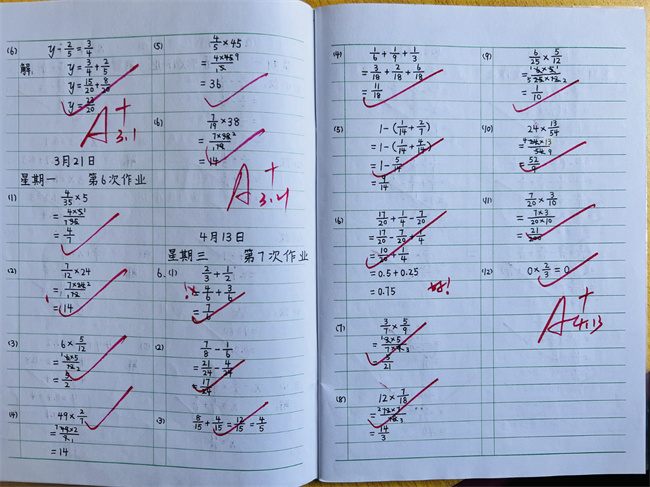 (6) y-2/5=3/4
解: y=3/4+2/5
y=15/20+8/20
y=23/20
A+
3.1
3月21日
星期一 第6次作业
(1) 4/35×5
=4×5/35
=4/7
(2) 7/12×24
=7×24/12
=14
(3) 6×5/12
=6×5/12
=5/2
(4) 49×2/7
=49×2/7
=14
(5) 4/5×45
=4×45/5
=36
(6) 7/19×38
=7×38/19
=14
A+
4月13日
星期三 第7次作业
6.(1) 2/3+1/2
=4/6+3/6
=7/6
(2) 7/8-1/6
=21/24-4/24
=17/24
(3) 8/15+4/15=12/15=4/5
(4) 1/6+1/9+1/3
=3/18+2/18+6/18
=11/18
(5) 1-(1/14+2/7)
=1-(1/14+4/14)
=1-5/14
=9/14
(6) 17/20+1/4-7/20
=17/20-7/20+1/4
=10/20+1/4
=0.5+0.25
=0.75
好!
(7) 3/7×5/9
=3×5/7×9
=5/21
(8) 12×7/18
=12×7/18
=14/3
(9) 6/25×5/12
=6×5/25×12
=1/10
(10) 24×13/54
=24×13/54
=52/9
(11) 7/20×3/10
=7×3/20×10
=21/200
(12) 0×2/3=0
A+
4.13